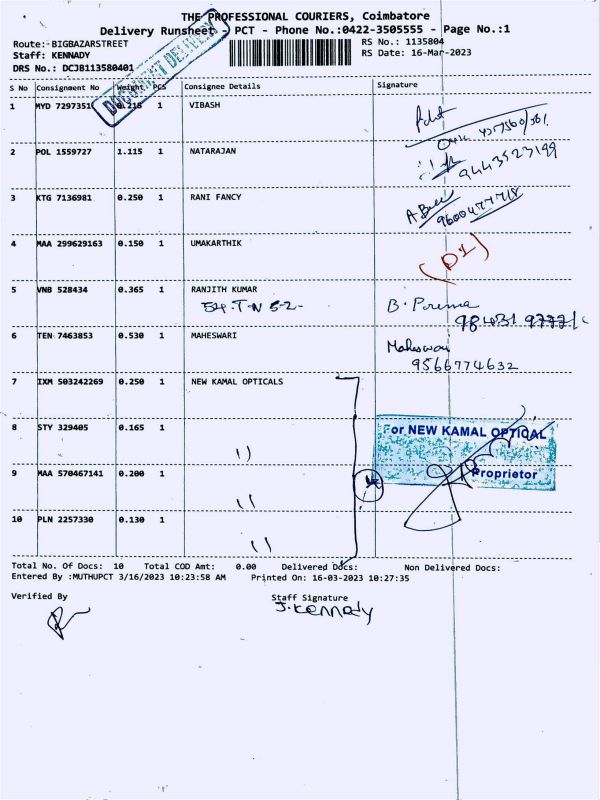 THE PROFESSIONAL COURIERS, Coimbatore
Delivery Runsheet - PCT - Phone No.:0422-3505555 - Page No.:1
Route:-BIGBAZARSTREET RS No.: 1135804
Staff: KENNADY RS Date: 16-Mar-2023
DRS No.: DCJB113580401
DOCUMENT DELIVERY
S No Consignment No Weight PCS Consignee Details Signature
1 MYD 7297351 0.216 1 VIBASH
2 POL 1559727 1.115 1 NATARAJAN 9443523199
3 KTG 7136981 0.250 1 RANI FANCY
9600477718
4 MAA 299629163 0.150 1 UMAKARTHIK
5 VNB 528434 0.365 1 RANJITH KUMAR B. Prema
6 TEN 7463853 0.530 1 MAHESWARI
9566774632
7 IXM 503242269 0.250 1 NEW KAMAL OPTICALS
8 STY 329405 0.165 1 "
For NEW KAMAL OPTICAL
9 MAA 570467141 0.200 1 "
Proprietor
10 PLN 2257330 0.130 1 "
Total No. Of Docs: 10 Total COD Amt: 0.00 Delivered Docs: Non Delivered Docs:
Entered By :MUTHUPCT 3/16/2023 10:23:58 AM Printed On: 16-03-2023 10:27:35
Verified By Staff Signature
J. Kennady